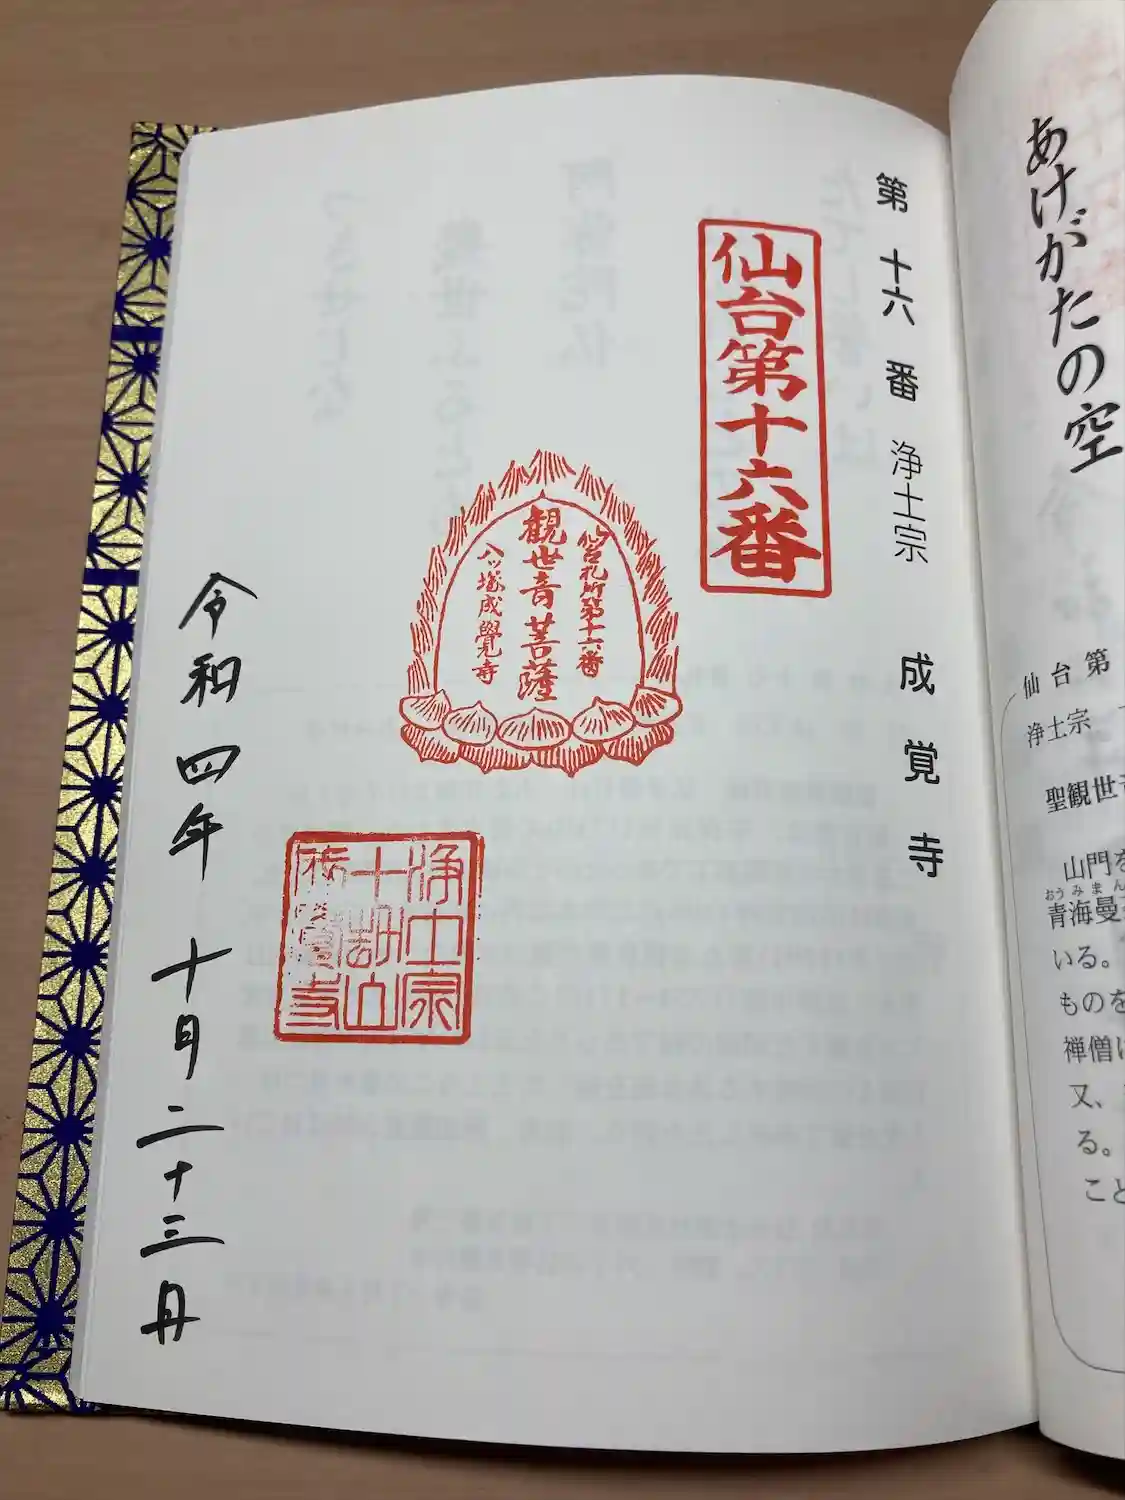 あけがたの空
仙台第
浄土宗
聖観世
山門を
おうみまん
青海曼
いる。
ものを
禅僧に
又、
る。
こと
第十六番 浄土宗 成覚寺
仙台第十六番
仙台札所第十六番
観世音菩薩
八ッ塚成覺寺
浄土宗
十劫山
成覺寺
令和四年十月二十三日